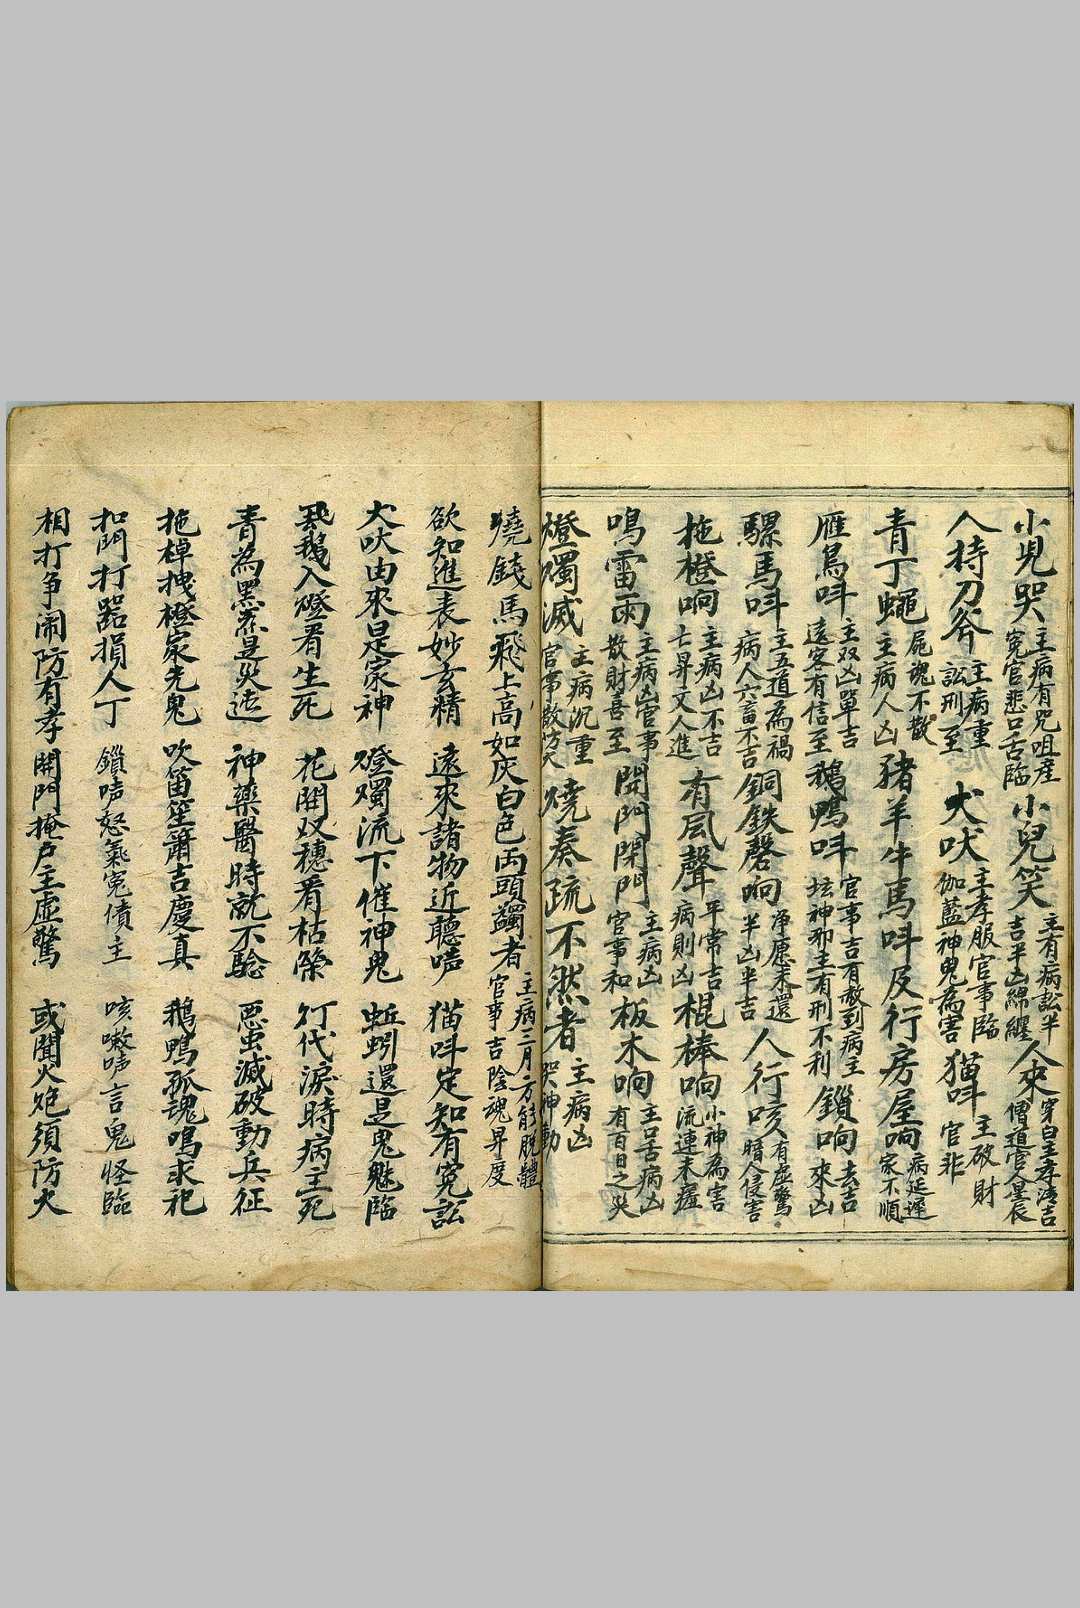 小児哭 主病有咒咀産 冤官悲口舌臨 小兒笑 主有病訟半 吉半凶綿纏 人來 穿白主孝淡吉 僧道官人星辰
人持刀斧 主病重 訟刑至 犬吠 主孝服官事臨 伽藍神鬼為害 猫呌 主破財 官非
青丁蠅 屍魂不散 主病人凶 豬羊牛馬呌及行房屋响 病延遲 家不順
雁鳥呌 主双凶單吉 遠客有信至 鵝鴨呌 官事吉有赦到病主 坛神邪主有刑不利 鎖响 去吉 來凶
騾馬呌 主五道為禍 病人六畜不吉 銅鉄磬响 淨愿未還 半凶半吉 人行咳 有虚驚 暗人侵害
拖橙响 主病凶不吉 亡昇文人進 有風聲 平常吉 病則凶 棍棒响 小神為害 流連未瘥
鳴雷雨 主病凶官事 散財喜至 開門閉門 主病凶 官事和 板木响 主口舌病凶 有百日之災
燈燭滅 主病沉重 官事散 燒奏疏不然者 主病凶 哭神動
燒錢馬飛上高如灰白色両頭蠲者 主病三月方能脫體 官事吉陰魂昇度
欲知進表妙玄精 遠來諸物近聽声 猫呌定知有冤訟
犬吠由來是家神 燈燭流下催神鬼 蚯蚓還是鬼魅臨
飛鵝入燈看生死 花開双穗看枯榮 灯代淚時病主死
青為黑煞是災迍 神藥醫時就不驗 悪虫滅破動兵征
拖棹拽橙家先鬼 吹笛笙簫吉慶真 鵝鴨孤魂鳴求祀
扣門打噐損人丁 鎖声怒氣冤債主 咳嗽声言鬼怪臨
相打争闹防有孝 開門掩戸主虚驚 或聞火炮須防火